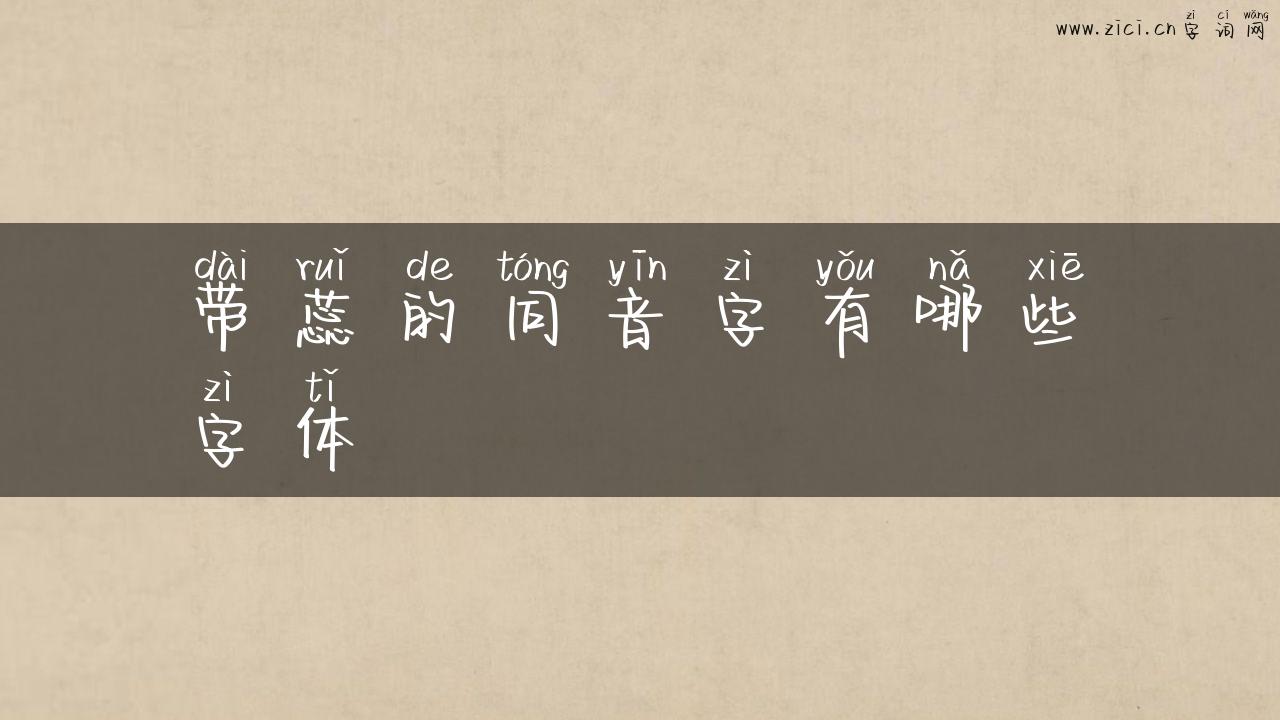 zì cí wǎng
www.zici.cn 字词网
dài ruǐ de tóng yīn zì yǒu nǎ xiē
带蕊的同音字有哪些
zì tǐ
字体